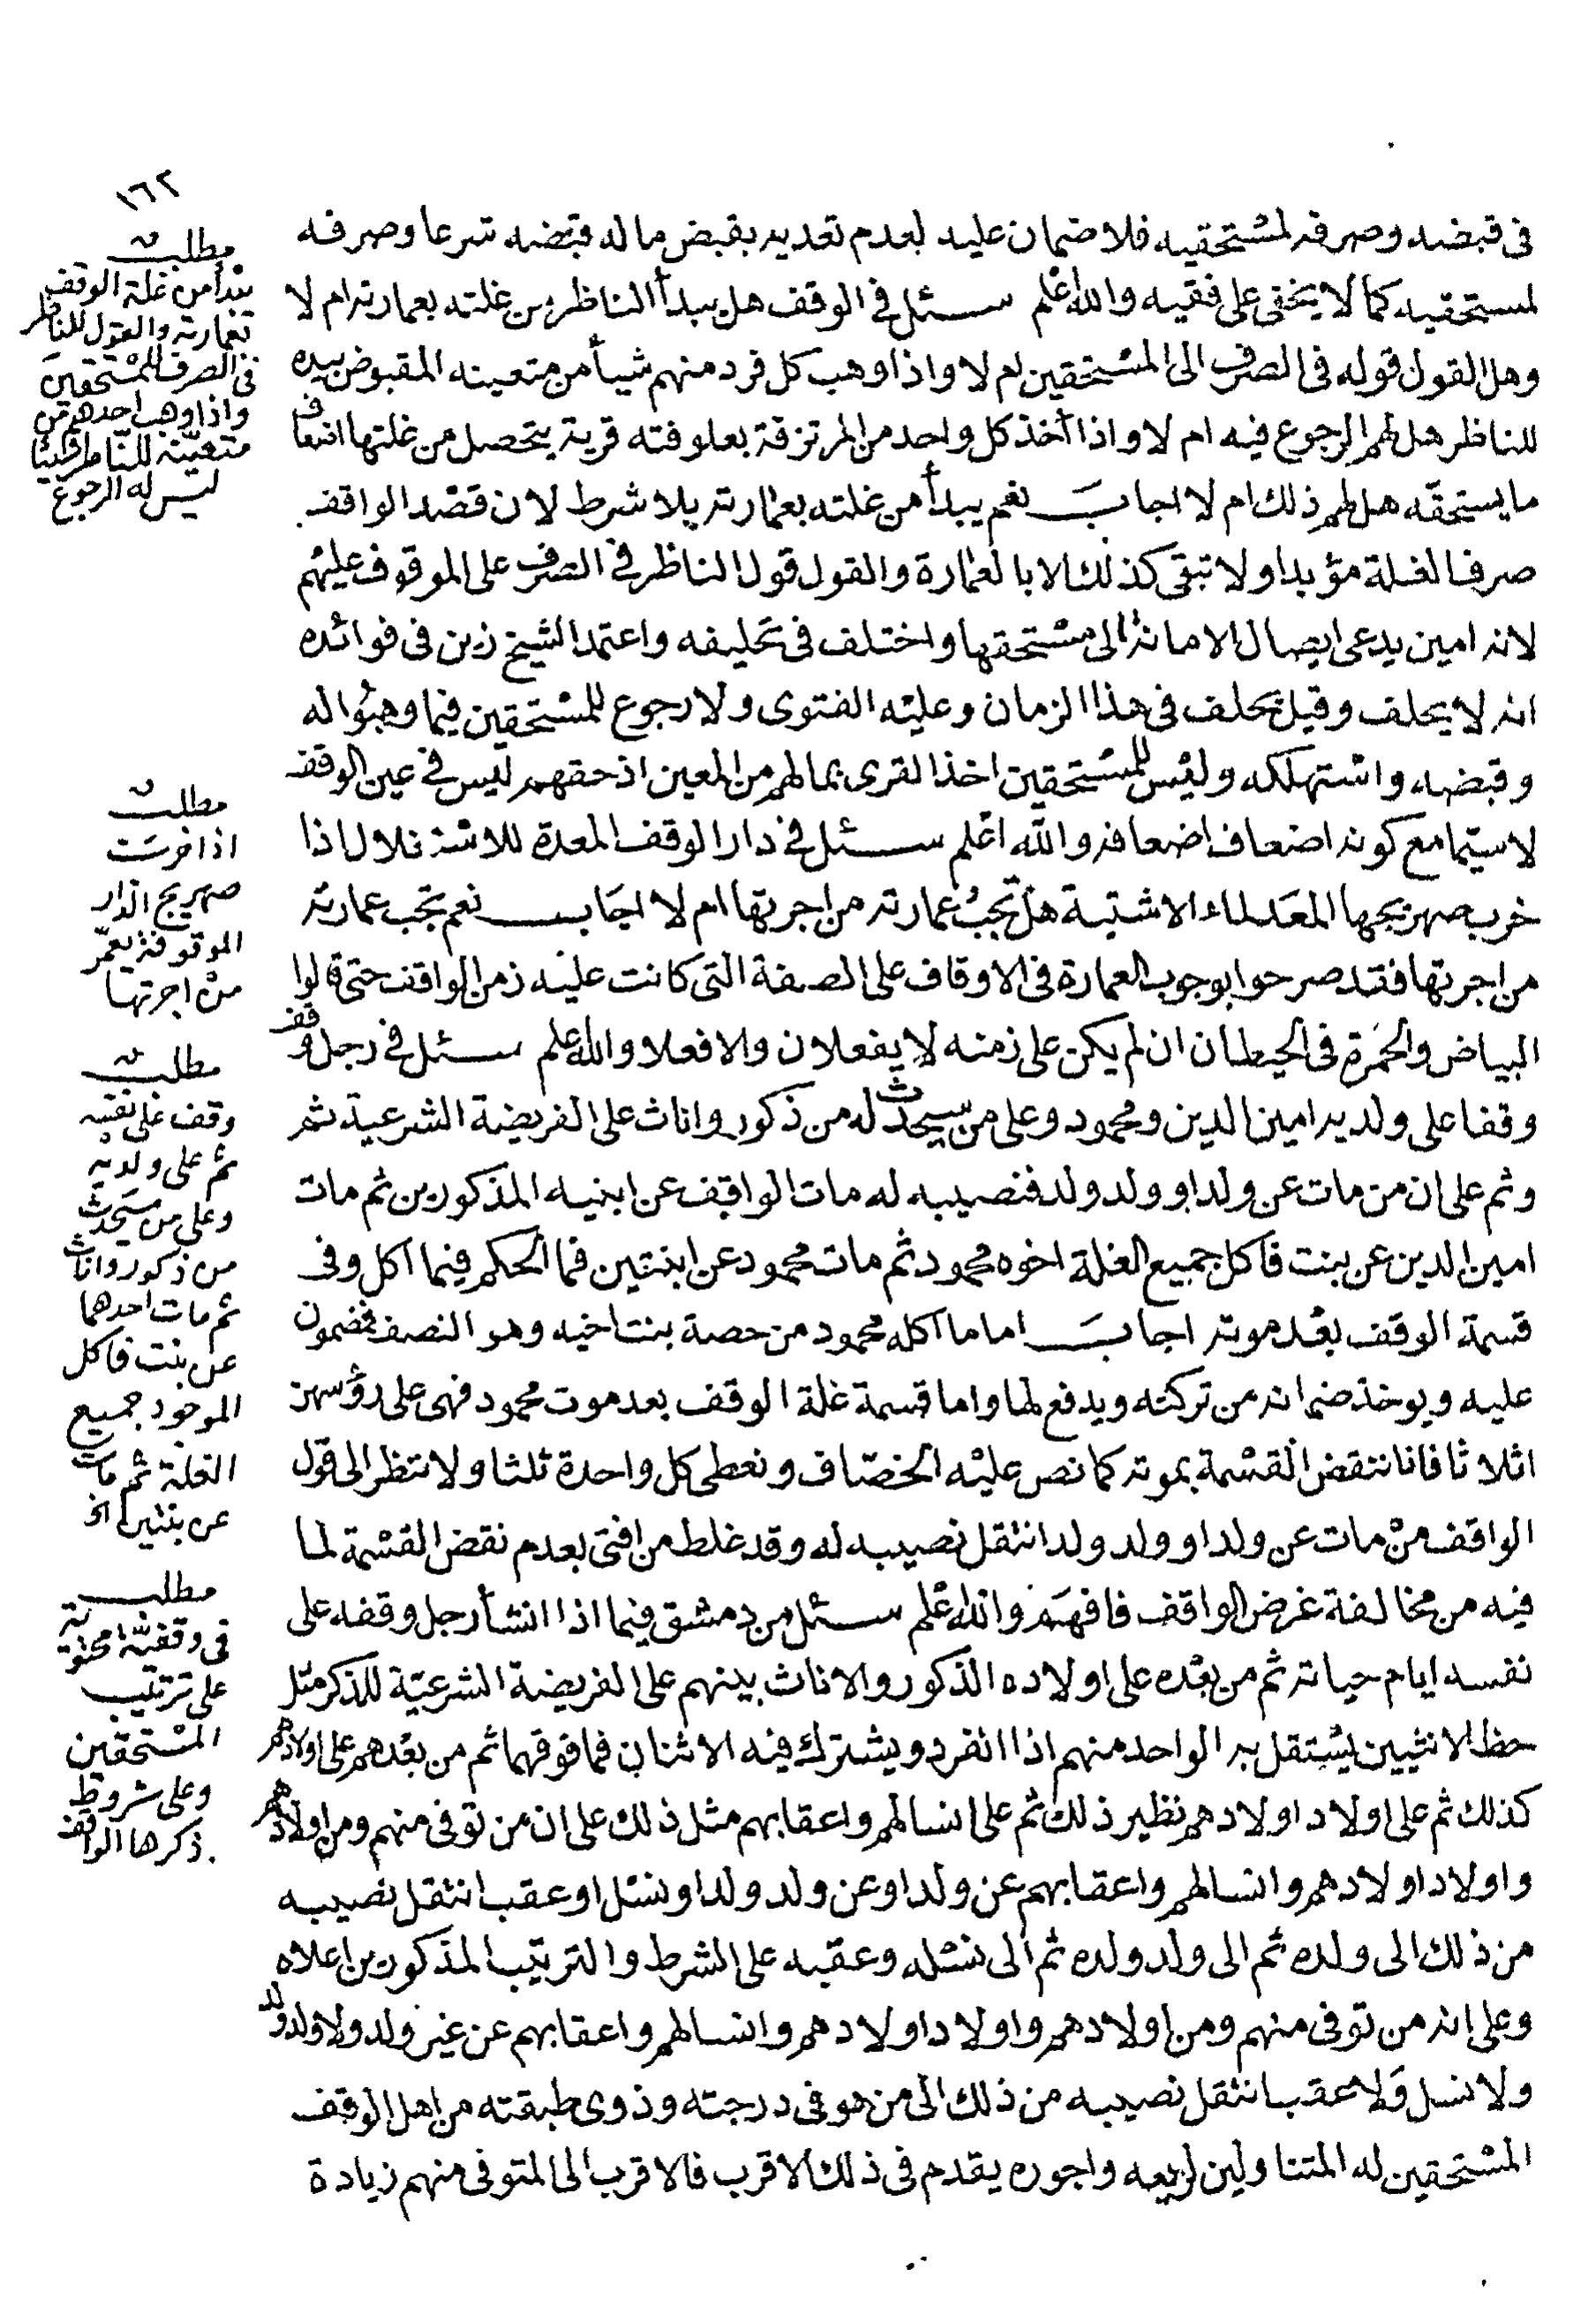 ١٦٢
فى قبضه وصرفه لمستحقيه فلا ضمان عليه لعدم تعديه بقبض ماله قبضه شرعا وصرفه
لمستحقيه كما لا يخفى على فقيه والله اعلم سئل فى الوقف هل يبدأ الناظر من غلته بعمارته ام لا
وهل القول قوله فى الصرف الى المستحقين ام لا واذا وهب كل فرد منهم شيأ من متعينه المقبوض بيده
للناظر هل لهم الرجوع فيه ام لا واذا أخذ كل واحد من المرتزقة بعلوفته قرية يتحصل من غلتها اضعاف
ما يستحقه هل لهم ذلك ام لا اجاب نعم يبدأ من غلته بعمارته بلا شرط لان قصد الواقف
صرف الغلة مؤبدا ولا تبقى كذلك الا بالعمارة والقول قول الناظر فى الصرف على الموقوف عليهم
لانه امين يدعى ايصال الامانة الى مستحقها واختلف فى تحليفه واعتمد الشيخ زين فى فوائده
انه لا يحلف وقيل يحلف فى هذا الزمان وعليه الفتوى ولا رجوع للمستحقين فيما وهبوا له
وقبضه واستهلكه وليس للمستحقين اخذ القرى بما لهم من المعين اذ حقهم ليس فى عين الوقف
لا سيما مع كونه اضعاف اضعافه والله اعلم سئل فى دار الوقف المعدة للاستغلال اذا
خرب صهريجها المعد لماء الاشتية هل تجب عمارته من اجرتها ام لا اجاب نعم تجب عمارته
من اجرتها فقد صرحوا بوجوب العمارة فى الاوقاف على الصفة التى كانت عليه زمن الواقف حتى قالوا
البياض والحمرة فى الحيطان ان لم يكن على زمنه لا يفعلان والا فعلا والله اعلم سئل فى رجل وقف
وقفا على ولديه امين الدين ومحمود وعلى من سيحدث له من ذكور واناث على الفريضة الشرعية ثم
وثم على ان من مات عن ولد او ولد ولد فنصيبه له مات الواقف عن ابنيه المذكورين ثم مات
امين الدين عن بنت فاكل جميع الغلة اخوه محمود ثم مات محمود عن ابنتين فما الحكم فيما اكل وفى
قسمة الوقف بعد موته اجاب اما ما اكله محمود من حصة بنت اخيه وهو النصف فمضمون
عليه ويوخذ ضمانه من تركته ويدفع لها واما قسمة غلة الوقف بعد موت محمود فهى على رؤسهن
اثلاثا فانا ننقض القسمة بموته كما نص عليه الخصاف ونعطى كل واحدة ثلثا ولا ننظر الى قول
الواقف من مات عن ولد او ولد ولد انتقل نصيبه له وقد غلط من افتى بعدم نقض القسمة لما
فيه من مخالفة غرض الواقف فافهم والله اعلم سئل من دمشق فيما اذا انشأ رجل وقفه على
نفسه ايام حياته ثم من بعده على اولاده الذكور والاناث بينهم على الفريضة الشرعية للذكر مثل
حظ الانثيين يستقل به الواحد منهم اذا انفرد ويشترك فيه الاثنان فما فوقهما ثم من بعدهم على اولادهم
كذلك ثم على اولاد اولادهم نظير ذلك ثم على انسالهم واعقابهم مثل ذلك على ان من توفى منهم ومن اولادهم
واولاد اولادهم وانسالهم واعقابهم عن ولد او عن ولد ولد او نسل او عقب انتقل نصيبه
من ذلك الى ولده ثم الى ولد ولده ثم الى نسله وعقبه على الشرط والترتيب المذكورين اعلاه
وعلى انه من توفى منهم ومن اولادهم واولاد اولادهم وانسالهم واعقابهم عن غير ولد ولا ولد ولد
ولا نسل ولا عقب انتقل نصيبه من ذلك الى من هو فى درجته وذوى طبقته من اهل الوقف
المستحقين له المتناولين لريعه واجوره يقدم فى ذلك الاقرب فالاقرب الى المتوفى منهم زيادة
مطلب
يبدأ من غلة الوقف
بعمارته والقول للناظر
فى الصرف للمستحقين
واذا وهب احدهم من
متعينه للناظر شيئا
ليس له الرجوع
مطلب
اذا خربت
صهريج الدار
الموقوفة يعمر
من اجرتها
مطلب
وقف على نفسه
ثم على ولديه
وعلى من سيحدث
من ذكور واناث
ثم مات احدهما
عن بنت فاكل
الموجود جميع
الغلة ثم مات
عن بنتين الخ
مطلب
فى وقفية محتوية
على ترتيب
المستحقين
وعلى شروط
ذكرها الواقف